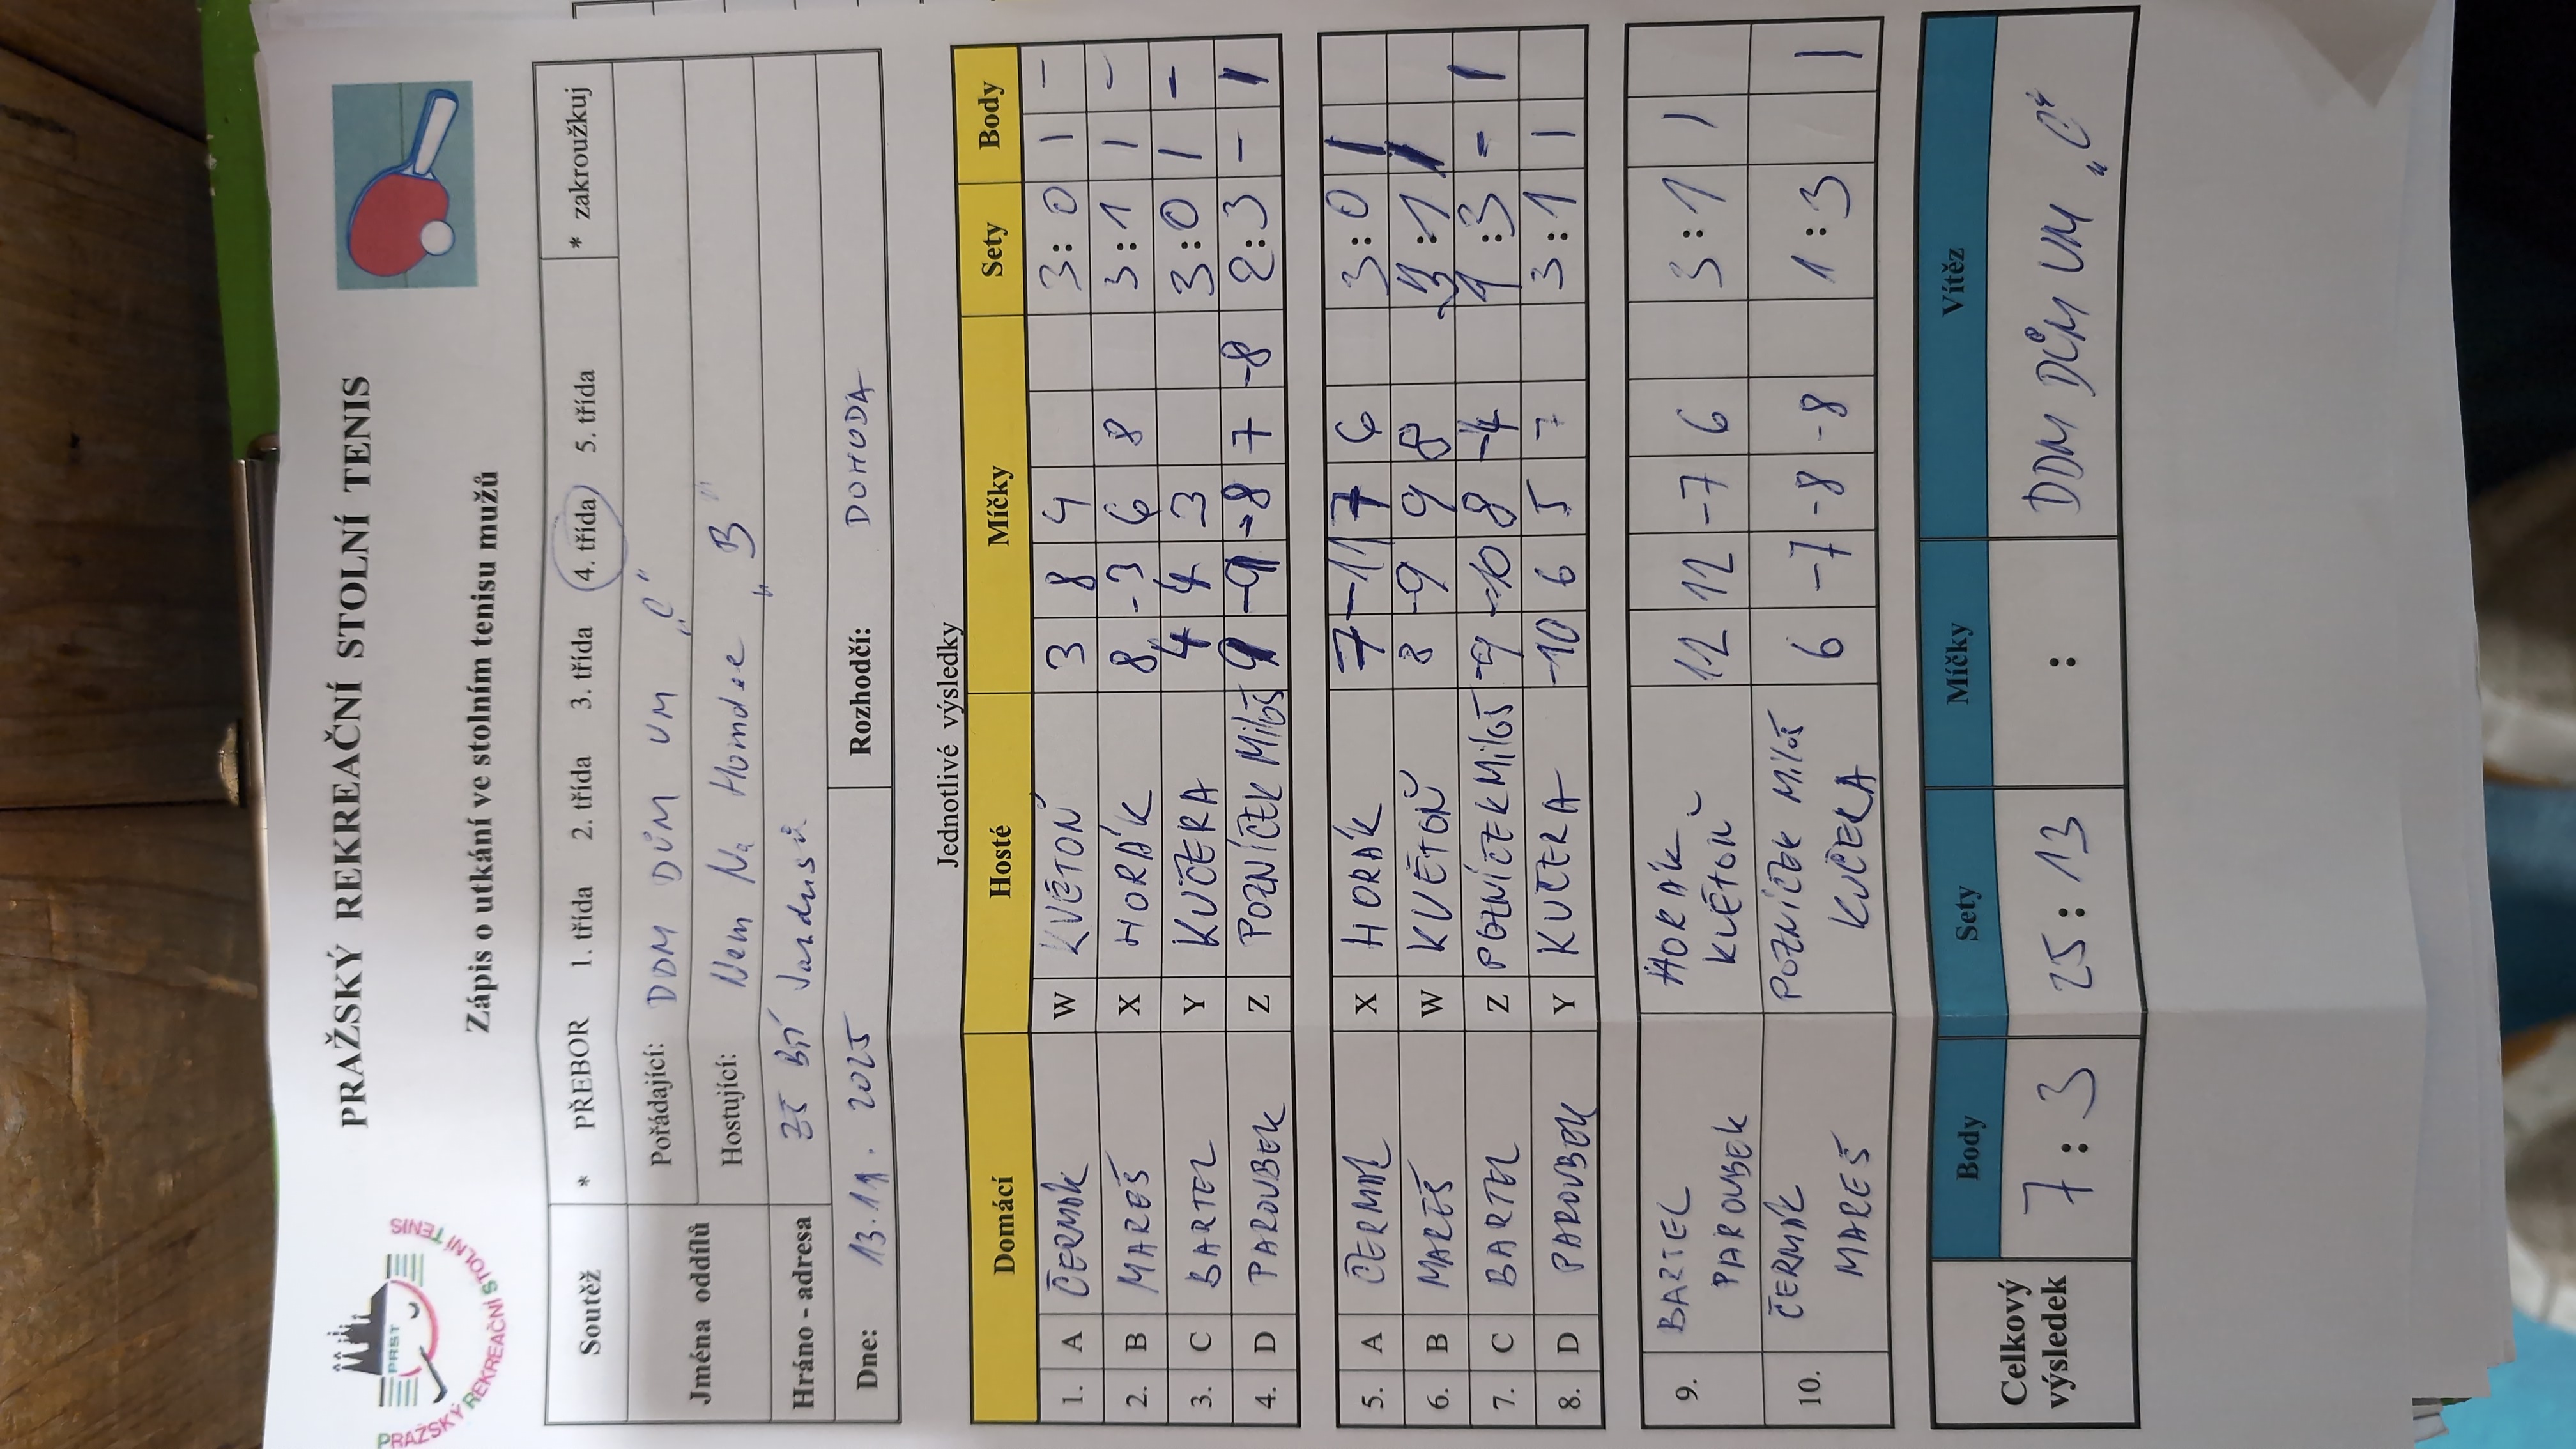 PRAŽSKÝ REKREAČNÍ STOLNÍ TENIS
PRST
PRAŽSKÝ REKREAČNÍ STOLNÍ TENIS
Zápis o utkání ve stolním tenisu mužů
Soutěž * PŘEBOR 1. třída 2. třída 3. třída 4. třída 5. třída * zakroužkuj
Jména oddílů
Pořádající: DDM DŮM UM „C"
Hostující: Nem Na Homolse „B"
Hráno - adresa ZŠ Bří Jandusů
Dne: 13.11.2025 Rozhodčí: DOHODA
Jednotlivé výsledky
Domácí Hosté Míčky Sety Body
1. A ČERMÁK W KVĚTOŇ 3 8 4 3:0 1 -
2. B MAREŠ X HORÁK 8 -3 6 8 3:1 1 -
3. C BARTEL Y KUČERA 4 4 3 3:0 1 -
4. D PAROUBEK Z POZNÍČEK Miloš 9 -9 -8 7 -8 2:3 - 1
5. A ČERMÁK X HORÁK 7 -11 7 6 3:0 1
6. B MAREŠ W KVĚTOŇ 8 -9 9 8 3:1 1
7. C BARTEL Z POZNÍČEK Miloš -9 -10 8 -4 1:3 - 1
8. D PAROUBEK Y KUČERA -10 6 5 7 3:1 1
9. BARTEL HORÁK 12 12 -7 6 3:1 1
PAROUBEK KVĚTOŇ
10. ČERMÁK POZNÍČEK Miloš 6 -7 -8 -8 1:3 1
MAREŠ KUČERA
Celkový výsledek
Body Sety Míčky Vítěz
7:3 25:13 : DDM DŮM UM „C"